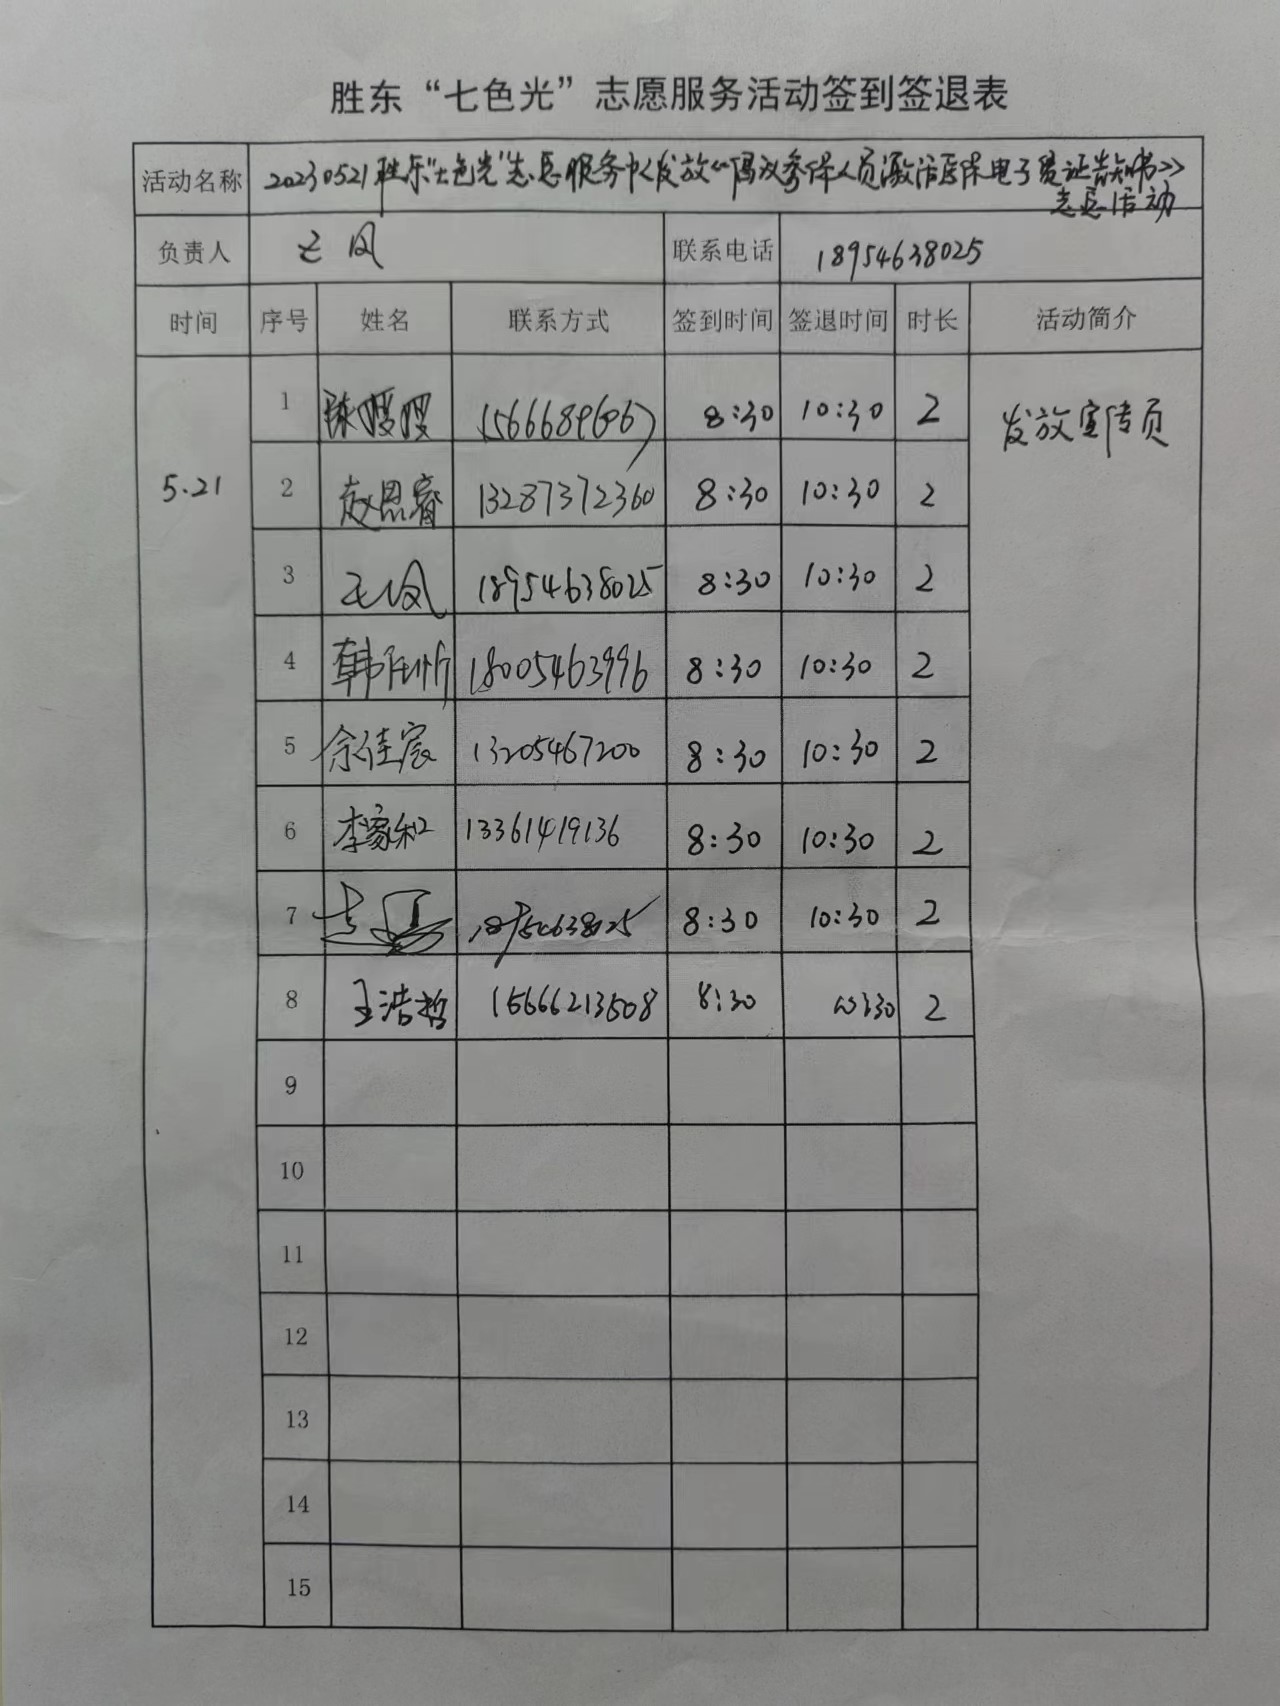 胜东“七色光”志愿服务活动签到签退表
活动名称 20230521胜东“七色光”志愿服务中心发放《倡议参保人员激活医保电子凭证告知书》
志愿活动
负责人 王凤 联系电话 18954638025
时间 序号 姓名 联系方式 签到时间 签退时间 时长 活动简介
5.21 1 陈嫂嫂 15666896067 8:30 10:30 2 发放宣传页
2 赵思睿 13287372360 8:30 10:30 2
3 王凤 18954638025 8:30 10:30 2
4 韩 18005463996 8:30 10:30 2
5 余佳宸 13205467200 8:30 10:30 2
6 李家和 13361419136 8:30 10:30 2
7 18954638025 8:30 10:30 2
8 王浩哲 15666213508 8:30 10:30 2
9
10
11
12
13
14
15